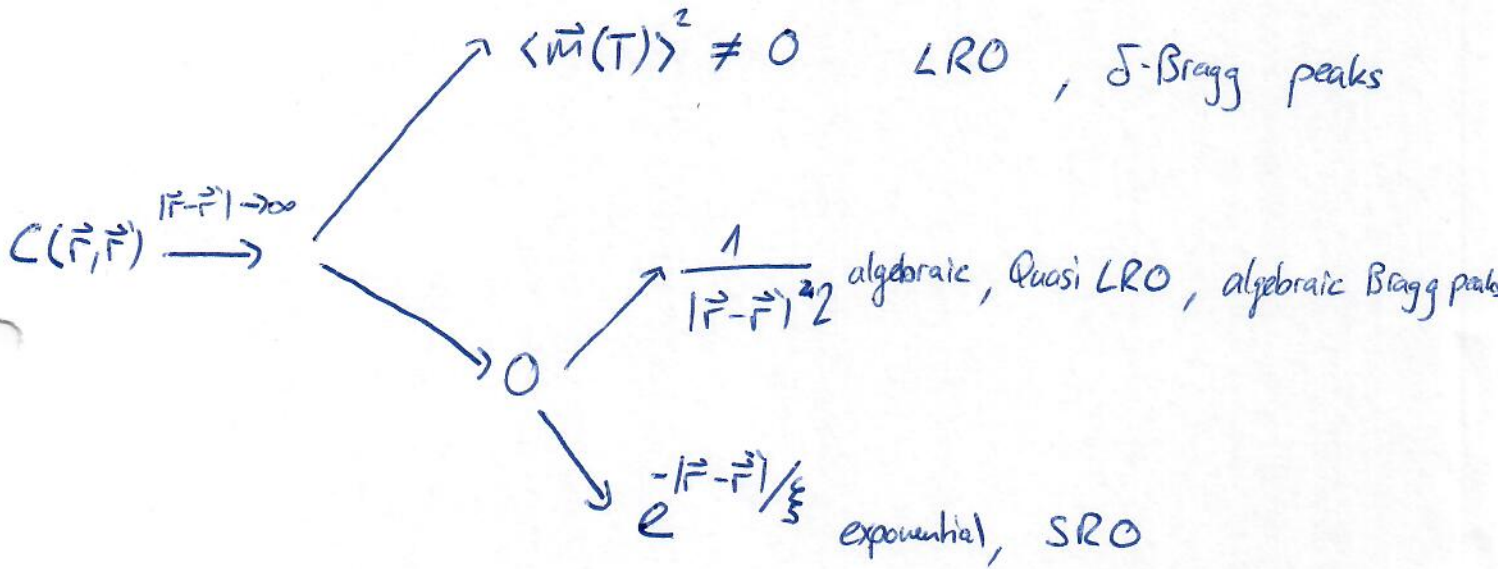 ⟨m⃗(T)⟩² ≠ 0 LRO , δ-Bragg peaks
C(r⃗,r⃗') |r⃗-r⃗'|→∞ ⟶
1/|r⃗-r⃗'| algebraic, Quasi LRO, algebraic Bragg peaks
0
e^{-|r⃗-r⃗'|/ξ} exponential, SRO